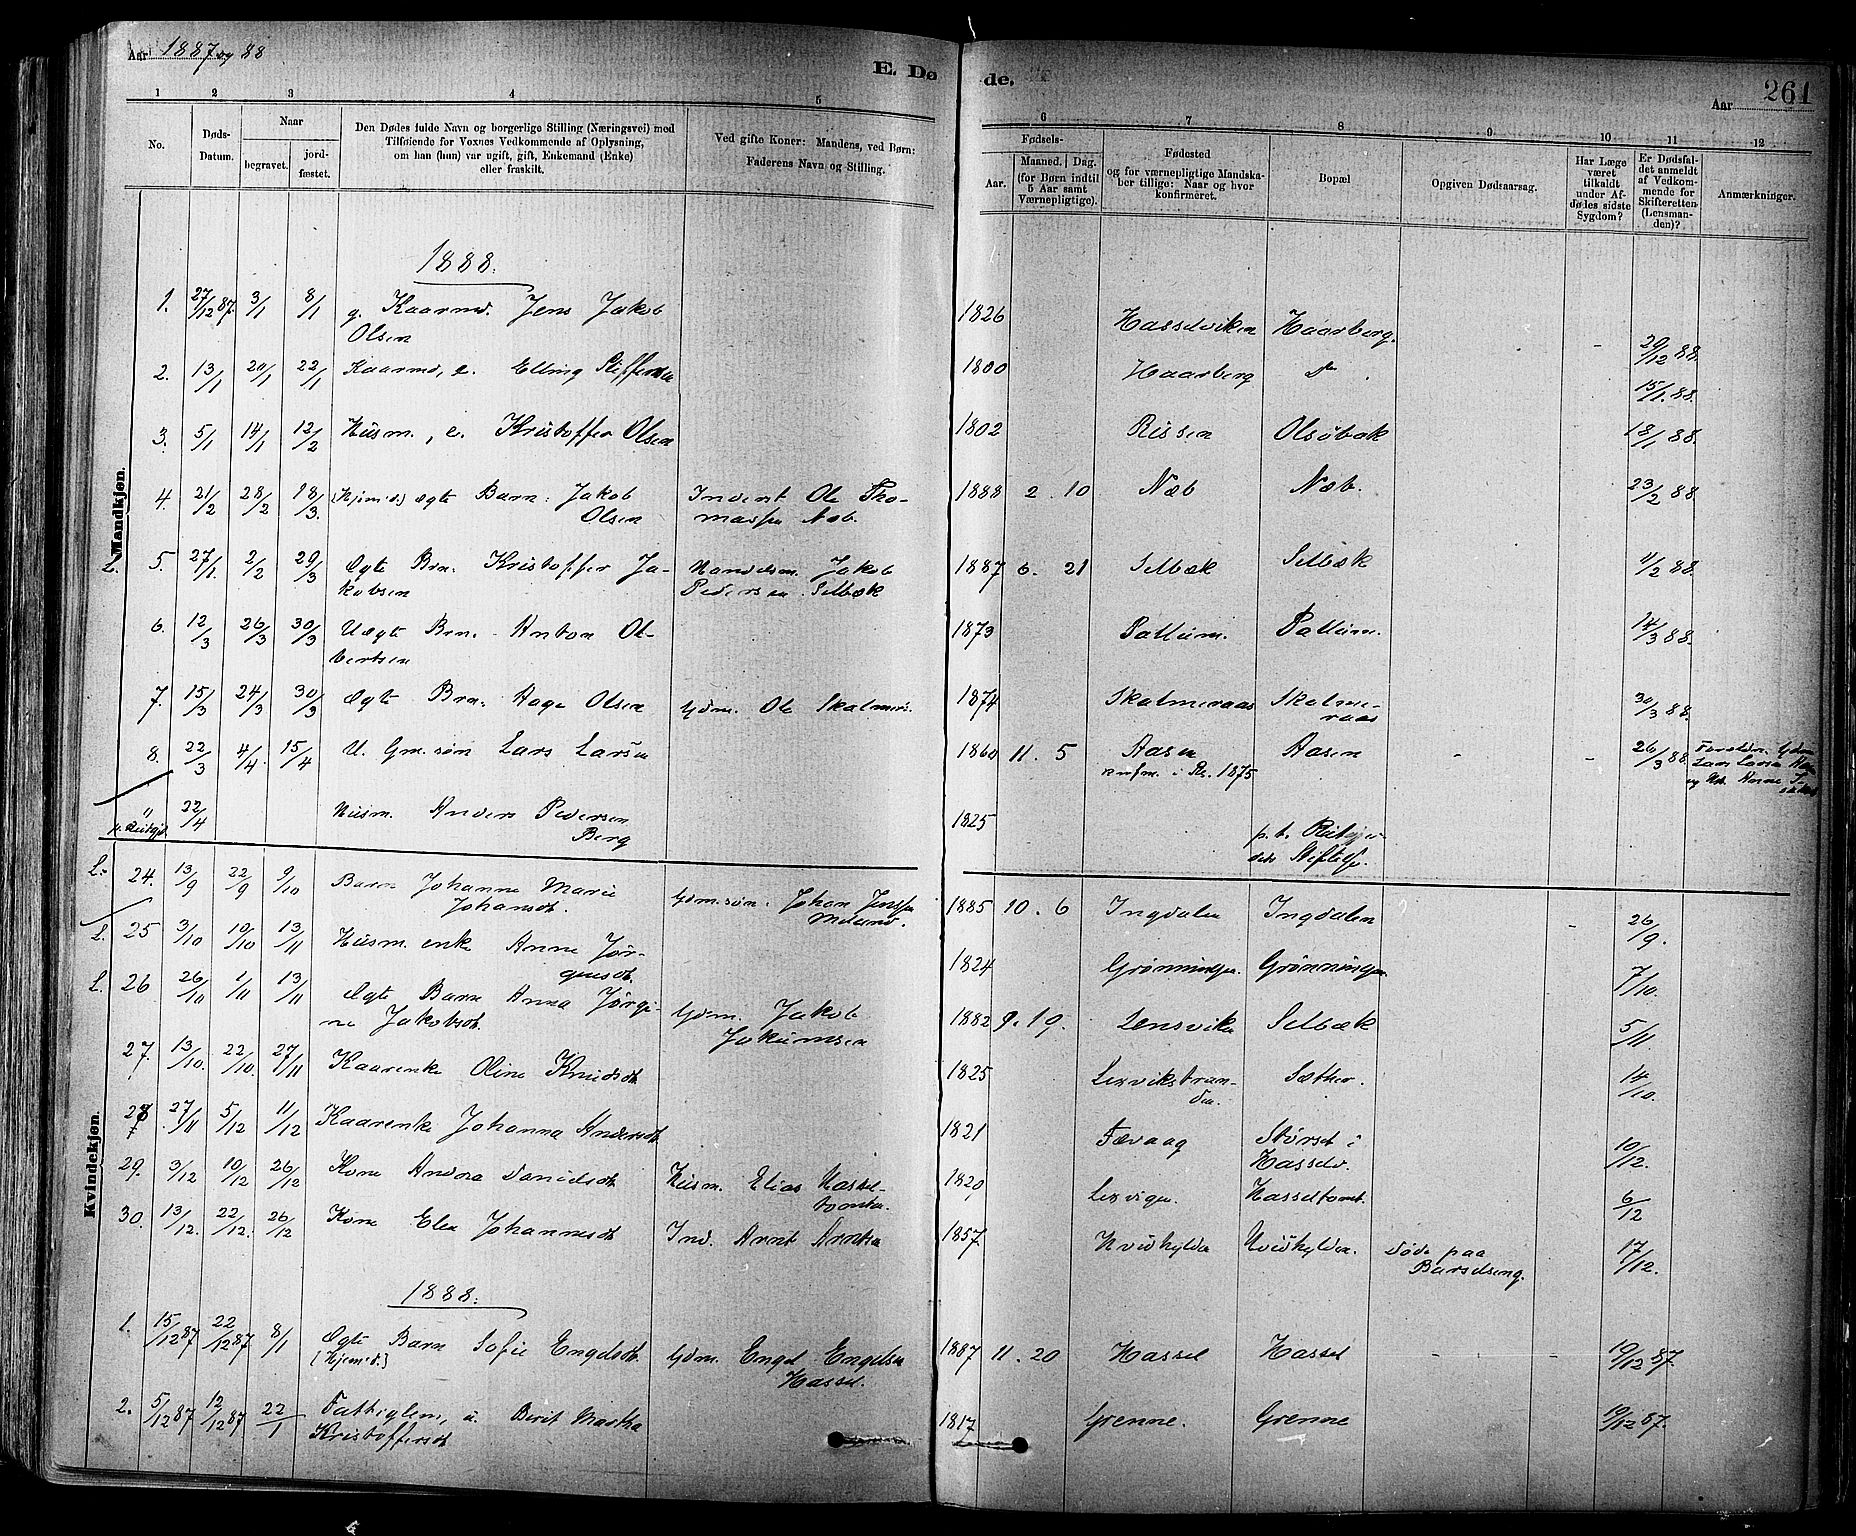 Aar 1887 og 88
E. Dø de.
Aar 261
1 2 3 4 5 6 7 8 9 10 11 12
No.
Døds-
Datum.
Naar
begravet.
jord-
fæstet.
Den Dødes fulde Navn og borgerlige Stilling (Næringsvei) med
Tilføiende for Voxnes Vedkommende af Oplysning,
om han (hun) var ugift, gift, Enkemand (Enke)
eller fraskilt.
Ved gifte Koner: Mandens, ved Børn:
Faderens Navn og Stilling.
Fødsels-
Aar.
Maaned. Dag.
(for Børn indtil
5 Aar samt
Værnepligtige).
Fødested
og for værnepligtige Mandska-
ber tillige: Naar og hvor
konfirmeret.
Bopæl
Opgiven Dødsaarsag.
Har Læge
været
tilkaldt
under Af-
dødes sidste
Sygdom?
Er Dødsfal-
det anmeldt
af Vedkom-
mende for
Skifteretten
(Lensman-
den)?
Anmærkninger.
Mandkjøn.
1888.
1. 27/12 87. 3/1 8/1 g. Kaarmd. Jens Jakob 1826 Hasselviken Haarberg. - 29/12 88.
Olsen
2. 13/1 20/1 22/1 Kaarmd, e. Elling Steffensen 1800 Haarberg Do 15/1 88.
3. 5/1 14/1 12/2 Husm., e. Kristoffer Olsen 1802 Rissen Olsøbak 18/1 88.
4. 21/2 28/2 18/3. (Hjemd.) Ægte Barn: Jakob Inderst Ole Tho- 1888 2. 10 Næb Næb. 23/2 88.
Olsen massen Næb.
L. 5. 27/1. 2/2 29/3 Ægte Brn. Kristoffer Ja- Handelsm. Jakob 1887 6. 21 Selbæk Selbæk 4/2 88.
kobsen Pedersen Selbæk
6. 12/3 26/3 30/3 Uægte Brn. Anton Ol- 1873 Pallum. Pallum. 14/3 88.
bertsen
7. 15/3 24/3 30/3 Ægte Brn. Aage Olsen Gdm. Ole Skalmer. 1874 Skalmeraas Skalme- 30/3 88.
raas
8. 22/3 4/4 15/4 U. Gm. søn Lars Larsen 1860 11. 5 Aasen Aasen - - 26/3 88.
konfm. i Rs. 1875
" 22/4 Husm. Anders Pedersen 1825 p. t. Reitgjer-
Berg dets Stiftelse.
Kvindekjøn.
L. 24. 13/9 22/9 9/10 Barn Johanne Marie Gdm.søn. Johan Jenssen 1885 10. 6 Ingdalen Ingdalen - 26/9.
Johansdt. Meland.
L. 25 3/10 10/10 13/11 Husm. enke Anne Jør- 1824 Grønningen. Grønningen 7/10.
gensdt.
L. 26 26/10 1/11 13/11 Ægte Barn Anna Jørgi- Gdm. Jakob 1882 9. 19. Lensvika Selbæk 5/11
ne Jakobsdt. Jakumsen
27. 13/10. 22/10. 27/11 Kaarenke Oline Knudsdt. 1825 Lexvikstran- Sæther. 14/10.
den.
28 27/11 5/12 11/12 Kaarenke Johanna Andersdt. 1821 Fævaag Størset i 10/12.
Hasselv.
29. 3/12 10/12 26/12 Kone Andrea Danielsdt. Husm. Elias Hassel- 1820 Lexvigen. Hasseltomt. 6/12
tomten.
30. 13/12. 22/12. 26/12 Kone Elen Johannesdt. Ind. Arnt Arntsen 1857 Hvidkylden Hvidkylden. Døde paa 17/12.
Barselseng.
1888.
1. 15/12 87 22/12 87 8/1 Ægte Barn Sofie Engelsdt. Gdm. Engel Engelsen 1887 11. 20 Hassel Hassel - - 19/12 87.
(Hjemd.) Hassel.
2. 5/12 87 12/12 87 22/1 Fattiglem, u. Berit Martha 1817 Grenne. Grenne 19/12 87.
Kristoffersdt